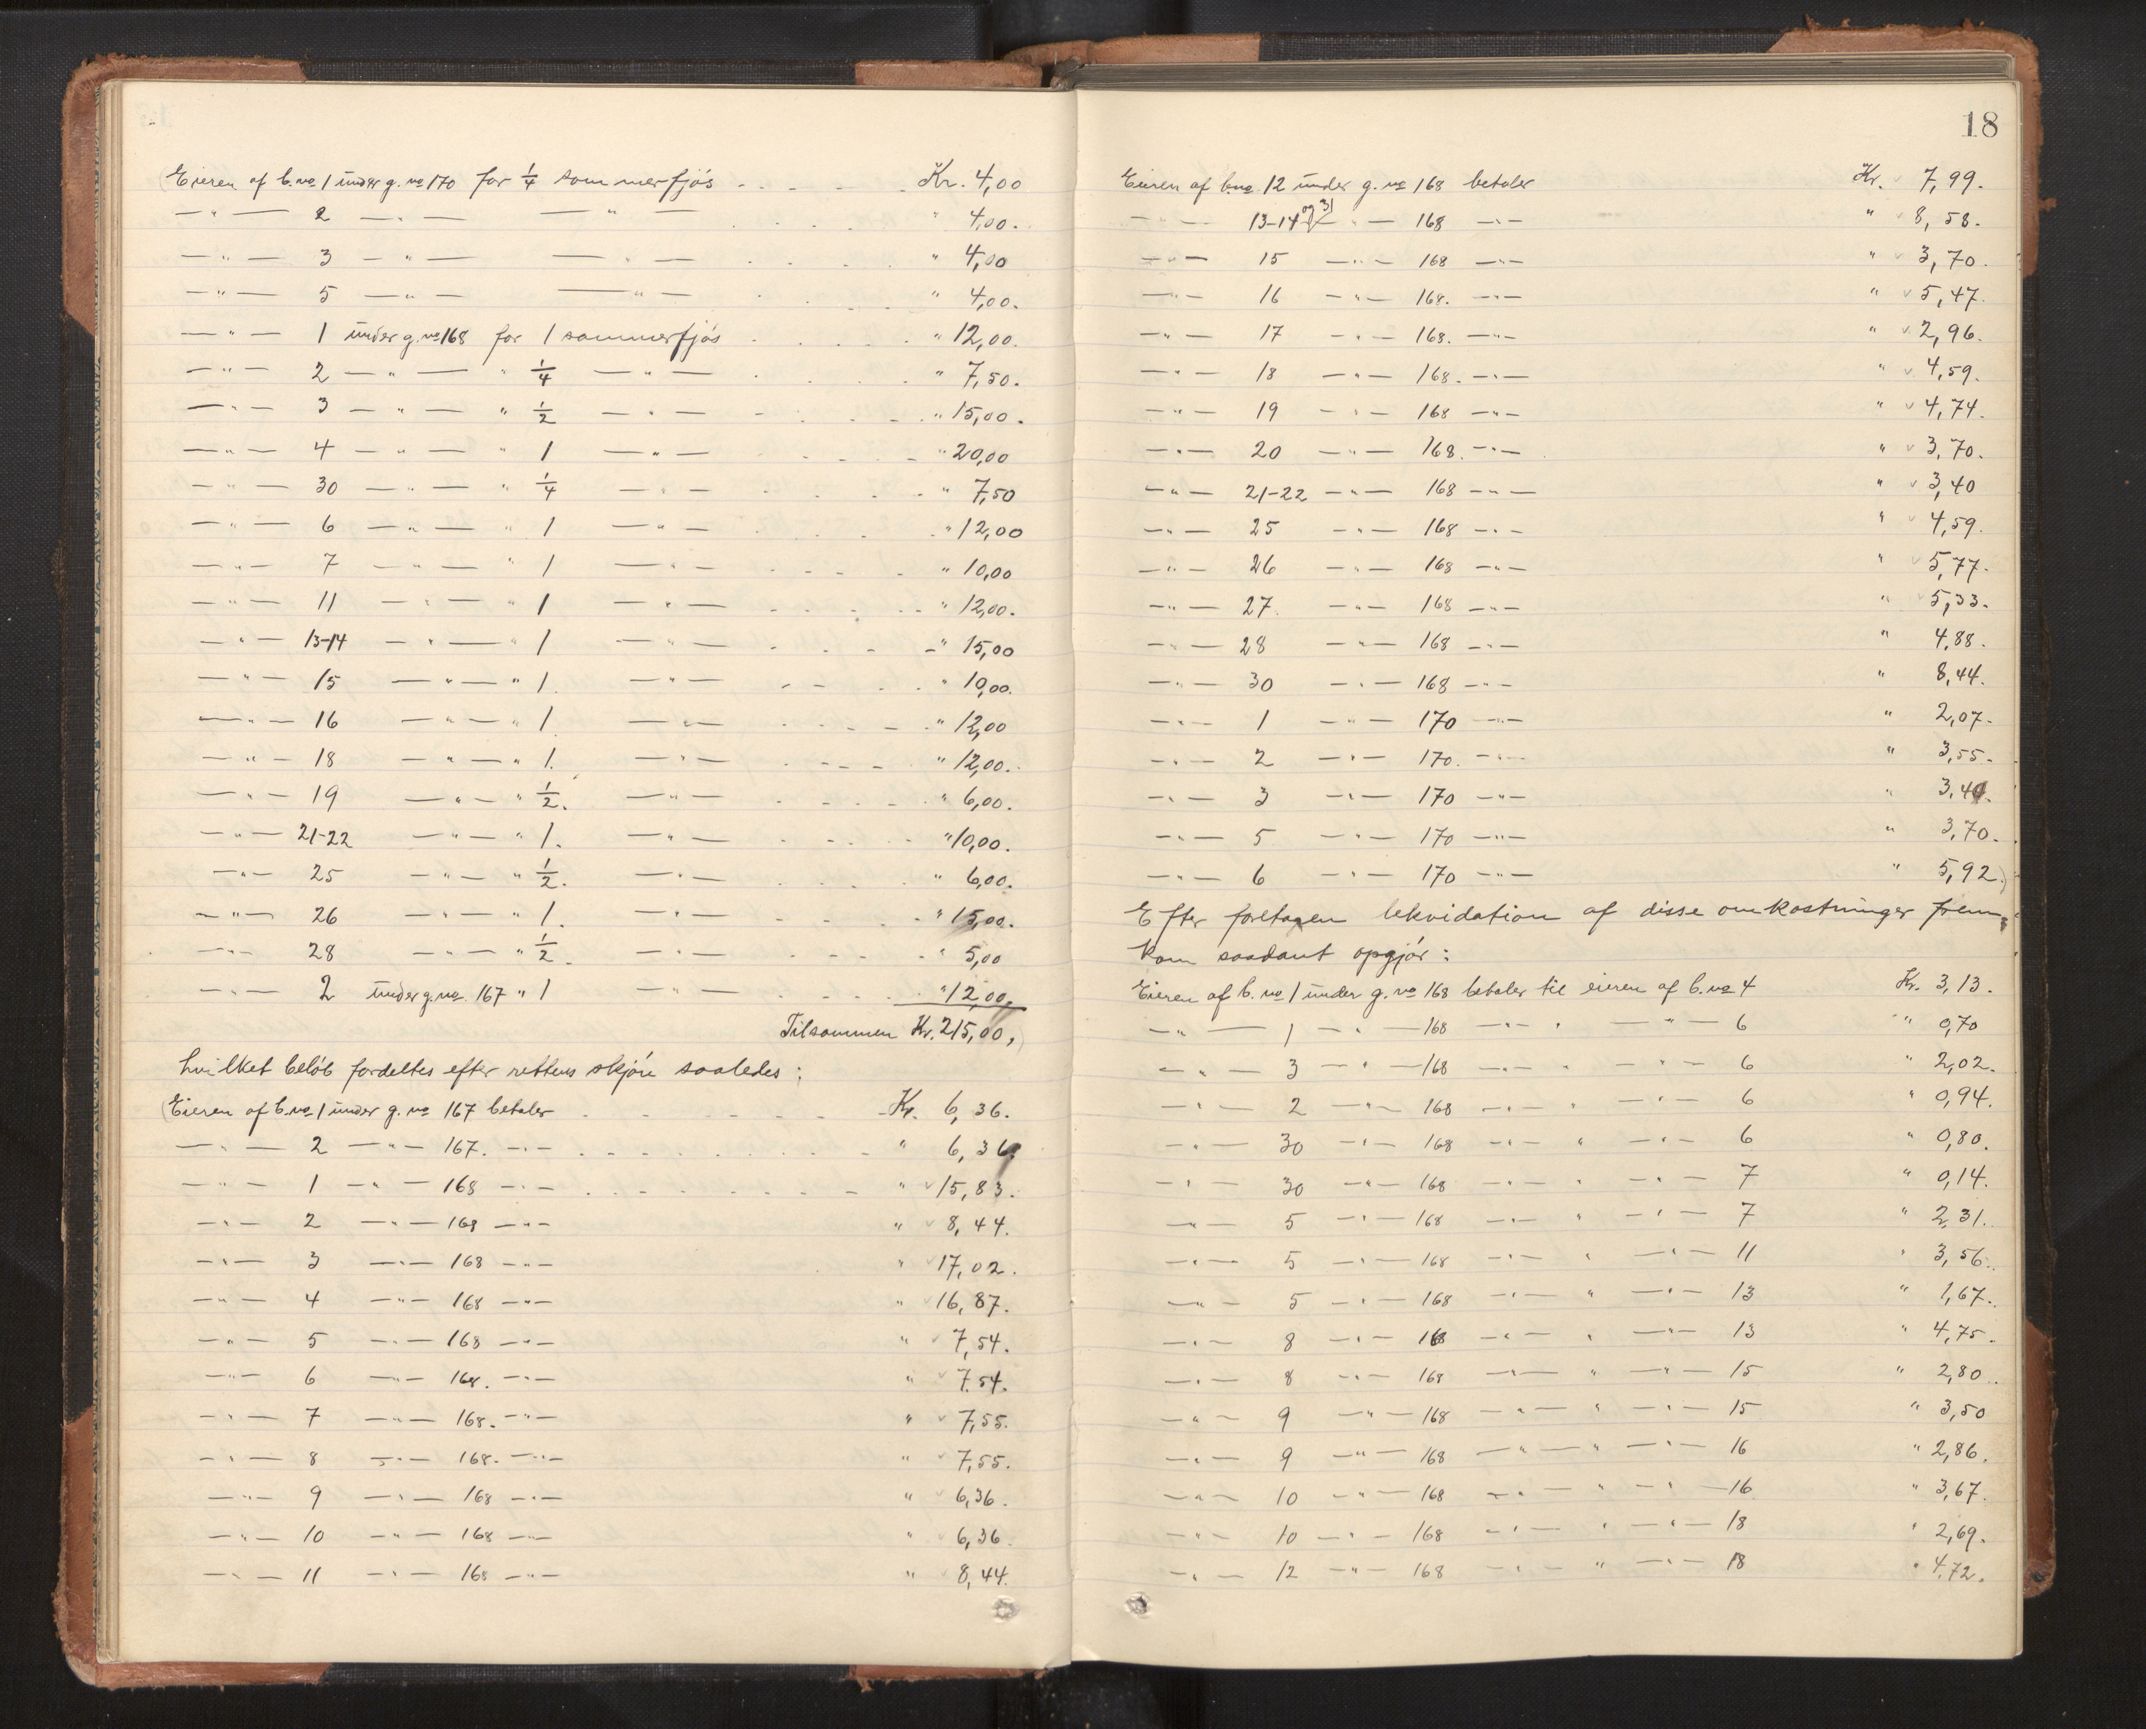 (Eieren af b. no 1 under g. no 170 for 1/4 sommerfjös . . . . . Kr. 4,00
— " — 2 — " — — " — . . . " 4,00.
— " — 3 — " — — " — . . . . " 4,00
— " — 5 — " — — " — . . . . " 4,00.
— " — 1 under g. no 168 for 1 sommerfjös . . . . . " 12,00.
— " — 2 — " — " 1/4 — " — . . . . " 7,50.
— " — 3 — " — " 1/2 — " — . . . . " 15,00.
— " — 4 — " — " 1 — " — . . . . " 20,00
— " — 30 — " — " 1/4 — " — . . . . " 7,50
— " — 6 — " — " 1 — " — . . . . " 12,00
— " — 7 — " — " 1 — " — . . . . " 10,00
— " — 11 — " — " 1 — " — . . . . " 12,00.
— " — 13-14 — " — " 1 — " — . . . . " 15,00
— " — 15 — " — " 1. — " — . . . . " 10,00.
— " — 16 — " — " 1. — " — . . . . " 12,00
— " — 18 — " — " 1. — " — . . . . " 12,00.
— " — 19 — " — " 1/2. — " — . . . . " 6,00.
— " — 21-22 — " — " 1. — " — . . . . " 10,00.
— " — 25 — " — " 1/2. — " — . . . . " 6,00.
— " — 26 — " — " 1. — " — . . . . " 15,00.
— " — 28 — " — " 1/2. — " — . . . . " 5,00
— " — 2 under g. no. 167 " 1 — " — . . . . " 12,00.
Tilsammen Kr. 215,00,)
hvilket belöb fordeltes efter rettens skjön saaledes:
(Eieren af b. no 1 under g. no 167 betaler . . . . . . Kr. 6,36.
— " — 2 — " — 167. — " — . . . . . . . . " 6,36.
— " — 1 — " — 168 — " — . . . . . . . . " v 15,83.
— " — 2 — " — 168 — " — " v 8,44.
— " — 3 — " — 168 — " — " v 17,02.
— " — 4 — " — 168 — " — " v 16,87.
— " — 5 — " — 168 — " — " v 7,54.
— " — 6 — " — 168. — " — " v 7.54.
— " — 7 — " — 168. — " — " v 7,55.
— " — 8 — " — 168. — " — " v 7,55.
— " — 9 — " — 168 — " — " v 6,36.
— " — 10 — " — 168 — " — " v 6,36.
— " — 11 — " — 168 — " — " v 8,44.
18
Eieren af b.no. 12 under g. no 168 betaler Kr. v 7,99.
— " — 13-14 og 31 — " — 168 — " — " v 8,58.
— " — 15 — " — 168 — " — " v 3,70.
— " — 16 — " — 168. — " — " v 5,47.
— " — 17 — " — 168. — " — " v 2,96.
— " — 18 — " — 168. — " — " v 4,59.
— " — 19 — " — 168 — " — " v 4,74.
— " — 20 — " — 168. — " — " v 3,70.
— " — 21-22 — " — 168 — " — " v 3,40
— " — 25 — " — 168 — " — " v 4,59.
— " — 26 — " — 168 — " — " v 5,77.
— " — 27. — " — 168 — " — " v 5,33.
— " — 28 — " — 168 — " — " 4,88.
— " — 30 — " — 168 — " — " 8,44.
— " — 1 — " — 170 — " — " 2,07.
— " — 2 — " — 170. — " — " 3,55.
— " — 3 — " — 170 — " — " 3,40.
— " — 5 — " — 170 — " — " 3,70.
— " — 6 — " — 170 — " — " 5,92.)
Efter foretagen lekvidation af disse omkostninger frem-
kom saadant opgjör:
Eieren af b. no 1 under g. no 168 betaler til eieren af b. no 4 Kr. 3,13.
— " — 1 — " — 168 — " — " — " — 6 " 0,70
— " — 3 — " — 168 — " — " — " — 6 " 2,02.
— " — 2 — " — 168 — " — " — " — 6 " 0,94.
— " — 30 — " — 168 — " — " — " — 6 " 0,80.
— " — 30 — " — 168 — " — " — " — 7 " 0,14.
— " — 5 — " — 168 — " — " — " — 7 " 2,31.
— " — 5 — " — 168 — " — " — " — 11 " 3,56.
— " — 5 — " — 168 — " — " — " — 13 " 1,67.
— " — 8 — " — 168 — " — " — " — 13 " 4,75.
— " — 8 — " — 168 — " — " — " — 15 " 2,80.
— " — 9 — " — 168 — " — " — " — 15 " 3,50
— " — 9 — " — 168 — " — " — " — 16 " 2,86.
— " — 10 — " — 168 — " — " — " — 16 " 3,67.
— " — 10 — " — 168 — " — " — " — 18 " 2,69.
— " — 12 — " — 168 — " — " — " — 18 " 4.72.